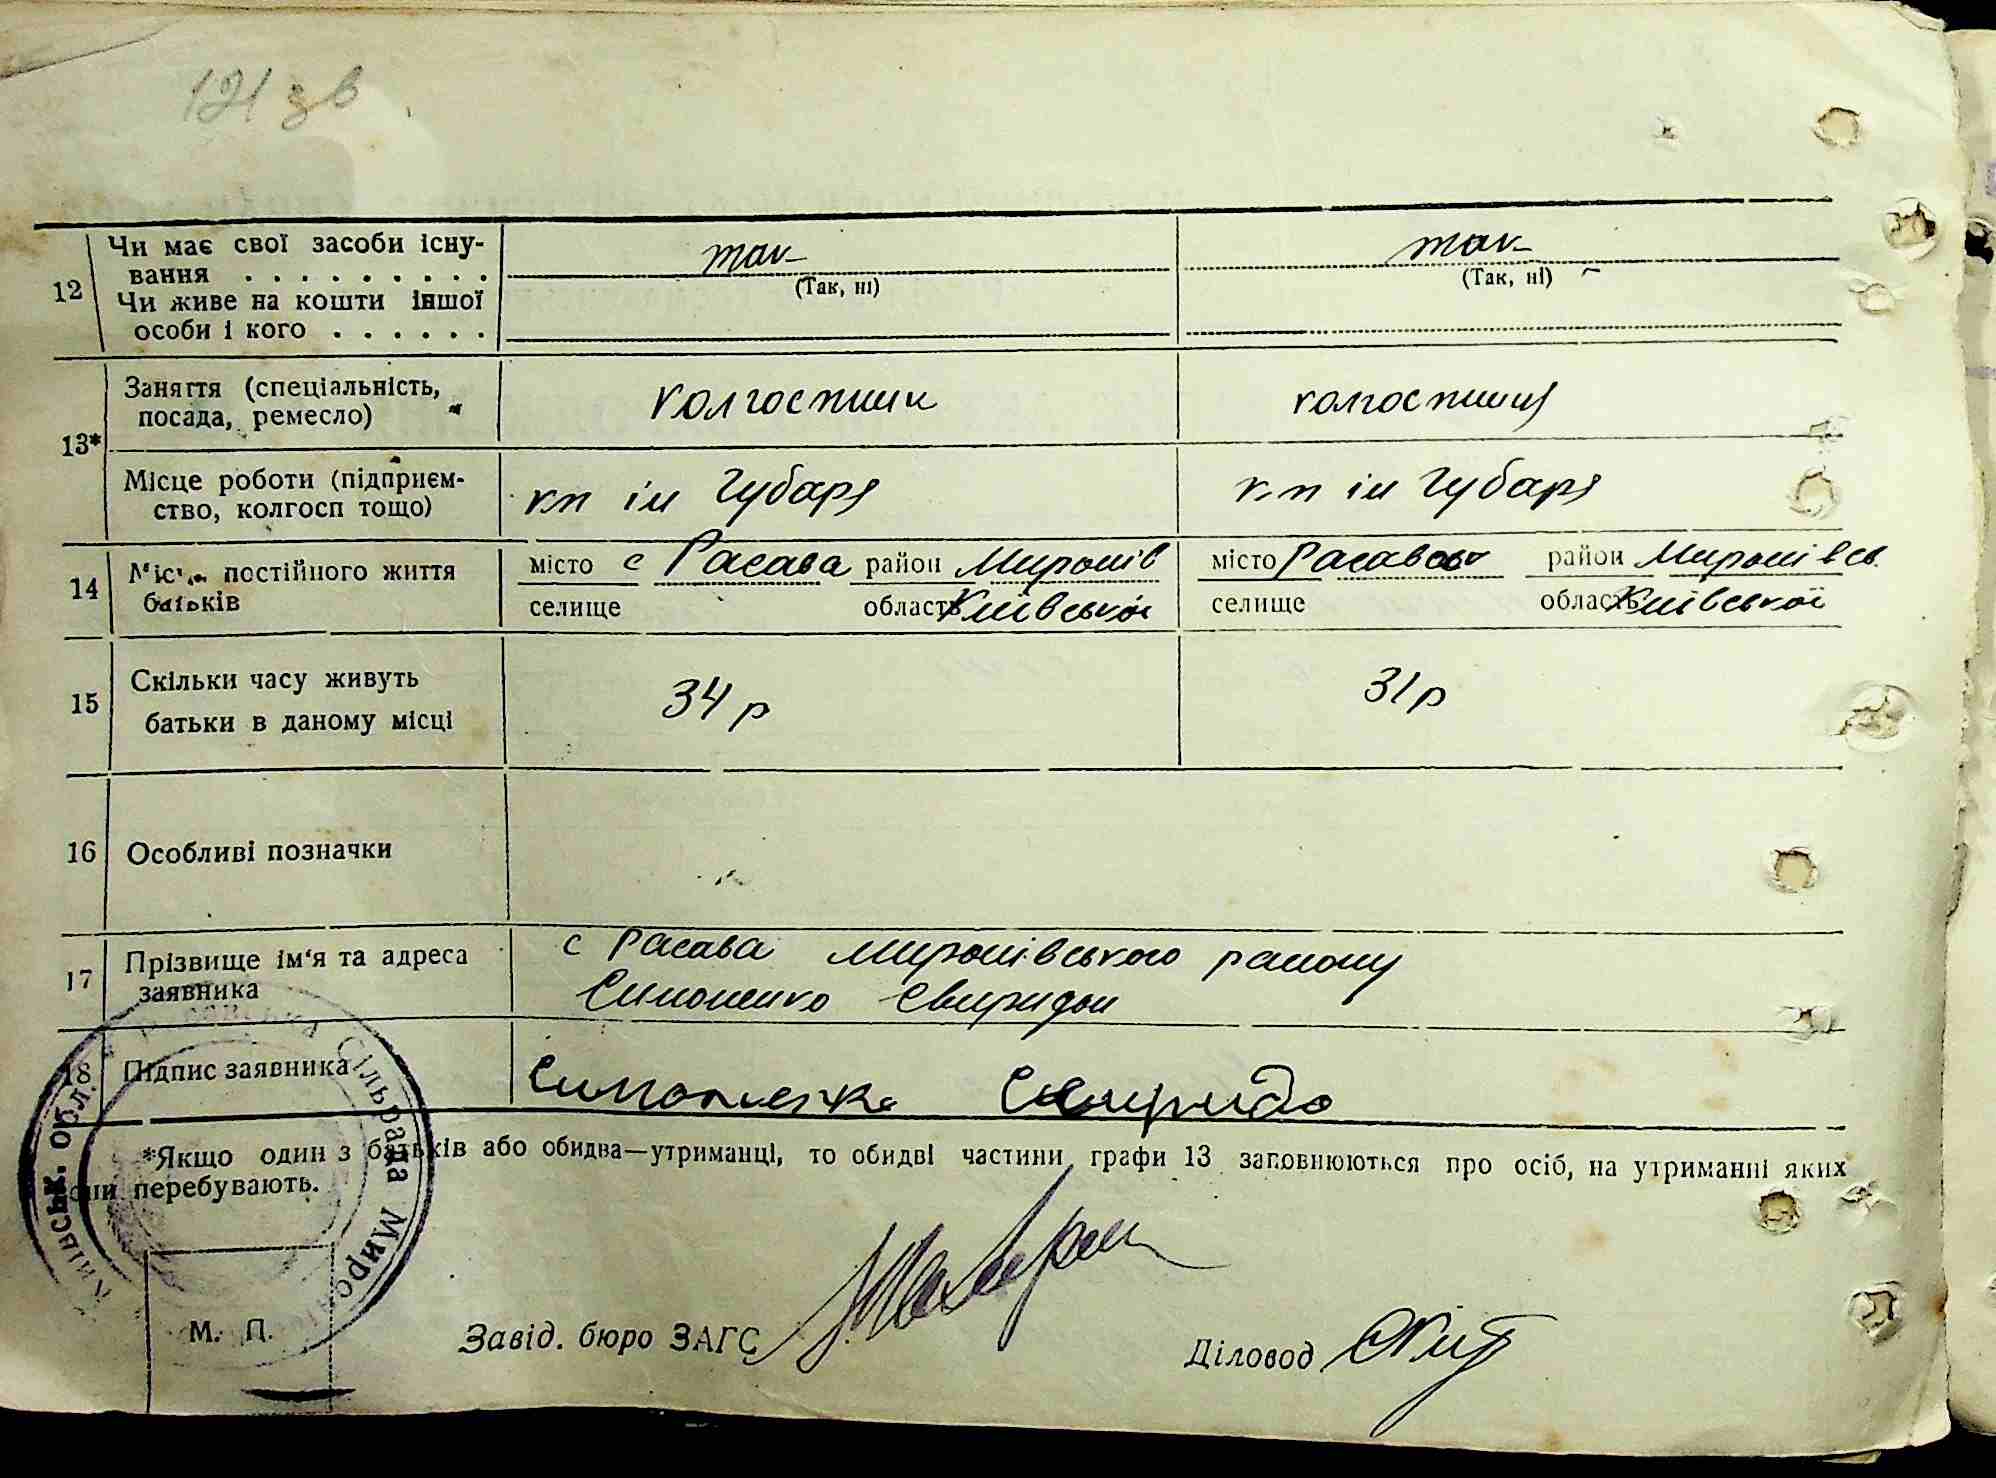 121 зв
12 Чи має свої засоби існу-
вання . . . . . . . . . . так так
(Так, ні) (Так, ні)
Чи живе на кошти іншої
особи і кого . . . . . .
13* Заняття (спеціальність,
посада, ремесло) колгоспник колгоспниця
Місце роботи (підприєм-
ство, колгосп тощо) кп ім Губаря к.п ім Губаря
14 постійного життя місто с Расава район Миронів місто район Миронівсь.
батьків селище область Київської селище область Київської
15 Скільки часу живуть
батьки в даному місці 34 р 31 р
16 Особливі позначки
17 Прізвище ім'я та адреса с Расава Миронівського району
заявника Симоненко Свиридон
18 Підпис заявника Симоненко Свиридо
*Якщо один з батьків або обидва—утриманці, то обидві частини графи 13 заповнюються про осіб, на утриманні яких
они перебувають.
Київськ. обл. Сільрада Миро
М. П.
Завід. бюро ЗАГС
Діловод